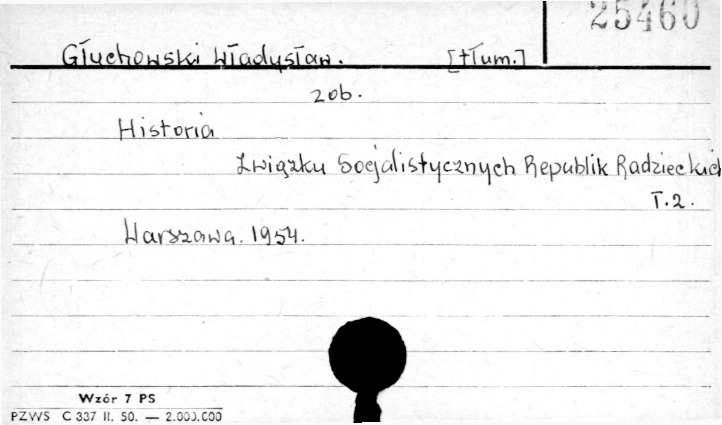 25460
Głuchowski Władysław. [tłum.]
zob.
Historia
Związku Socjalistycznych Republik Radzieckich
T.2.
Warszawa. 1954.
Wzór 7 PS
PZWS C 337 II. 50. — 2.000.000